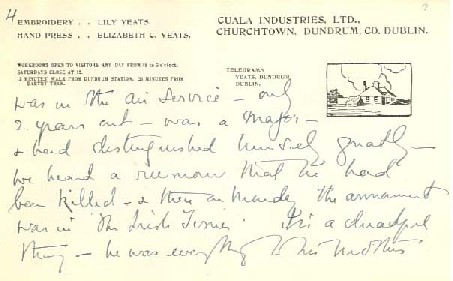 4
EMBROIDERY . . LILY YEATS.
HAND PRESS . . ELIZABETH C. YEATS.
CUALA INDUSTRIES, LTD.,
CHURCHTOWN, DUNDRUM, CO. DUBLIN.
WORKROOMS OPEN TO VISITORS ANY DAY FROM
SATURDAYS CLOSE AT
MINUTES WALK FROM DUNDRUM STATION. MINUTES FROM
TRAM.
TELEGRAMS
YEATS, DUNDRUM
DUBLIN.
was in the air service - only
years out - was a Major -
& had distinguished himself greatly -
we heard a rumour that he had
been killed - & then on Monday the announcement
was in "The Irish Times" It's a dreadful
thing - he was everything to his mother